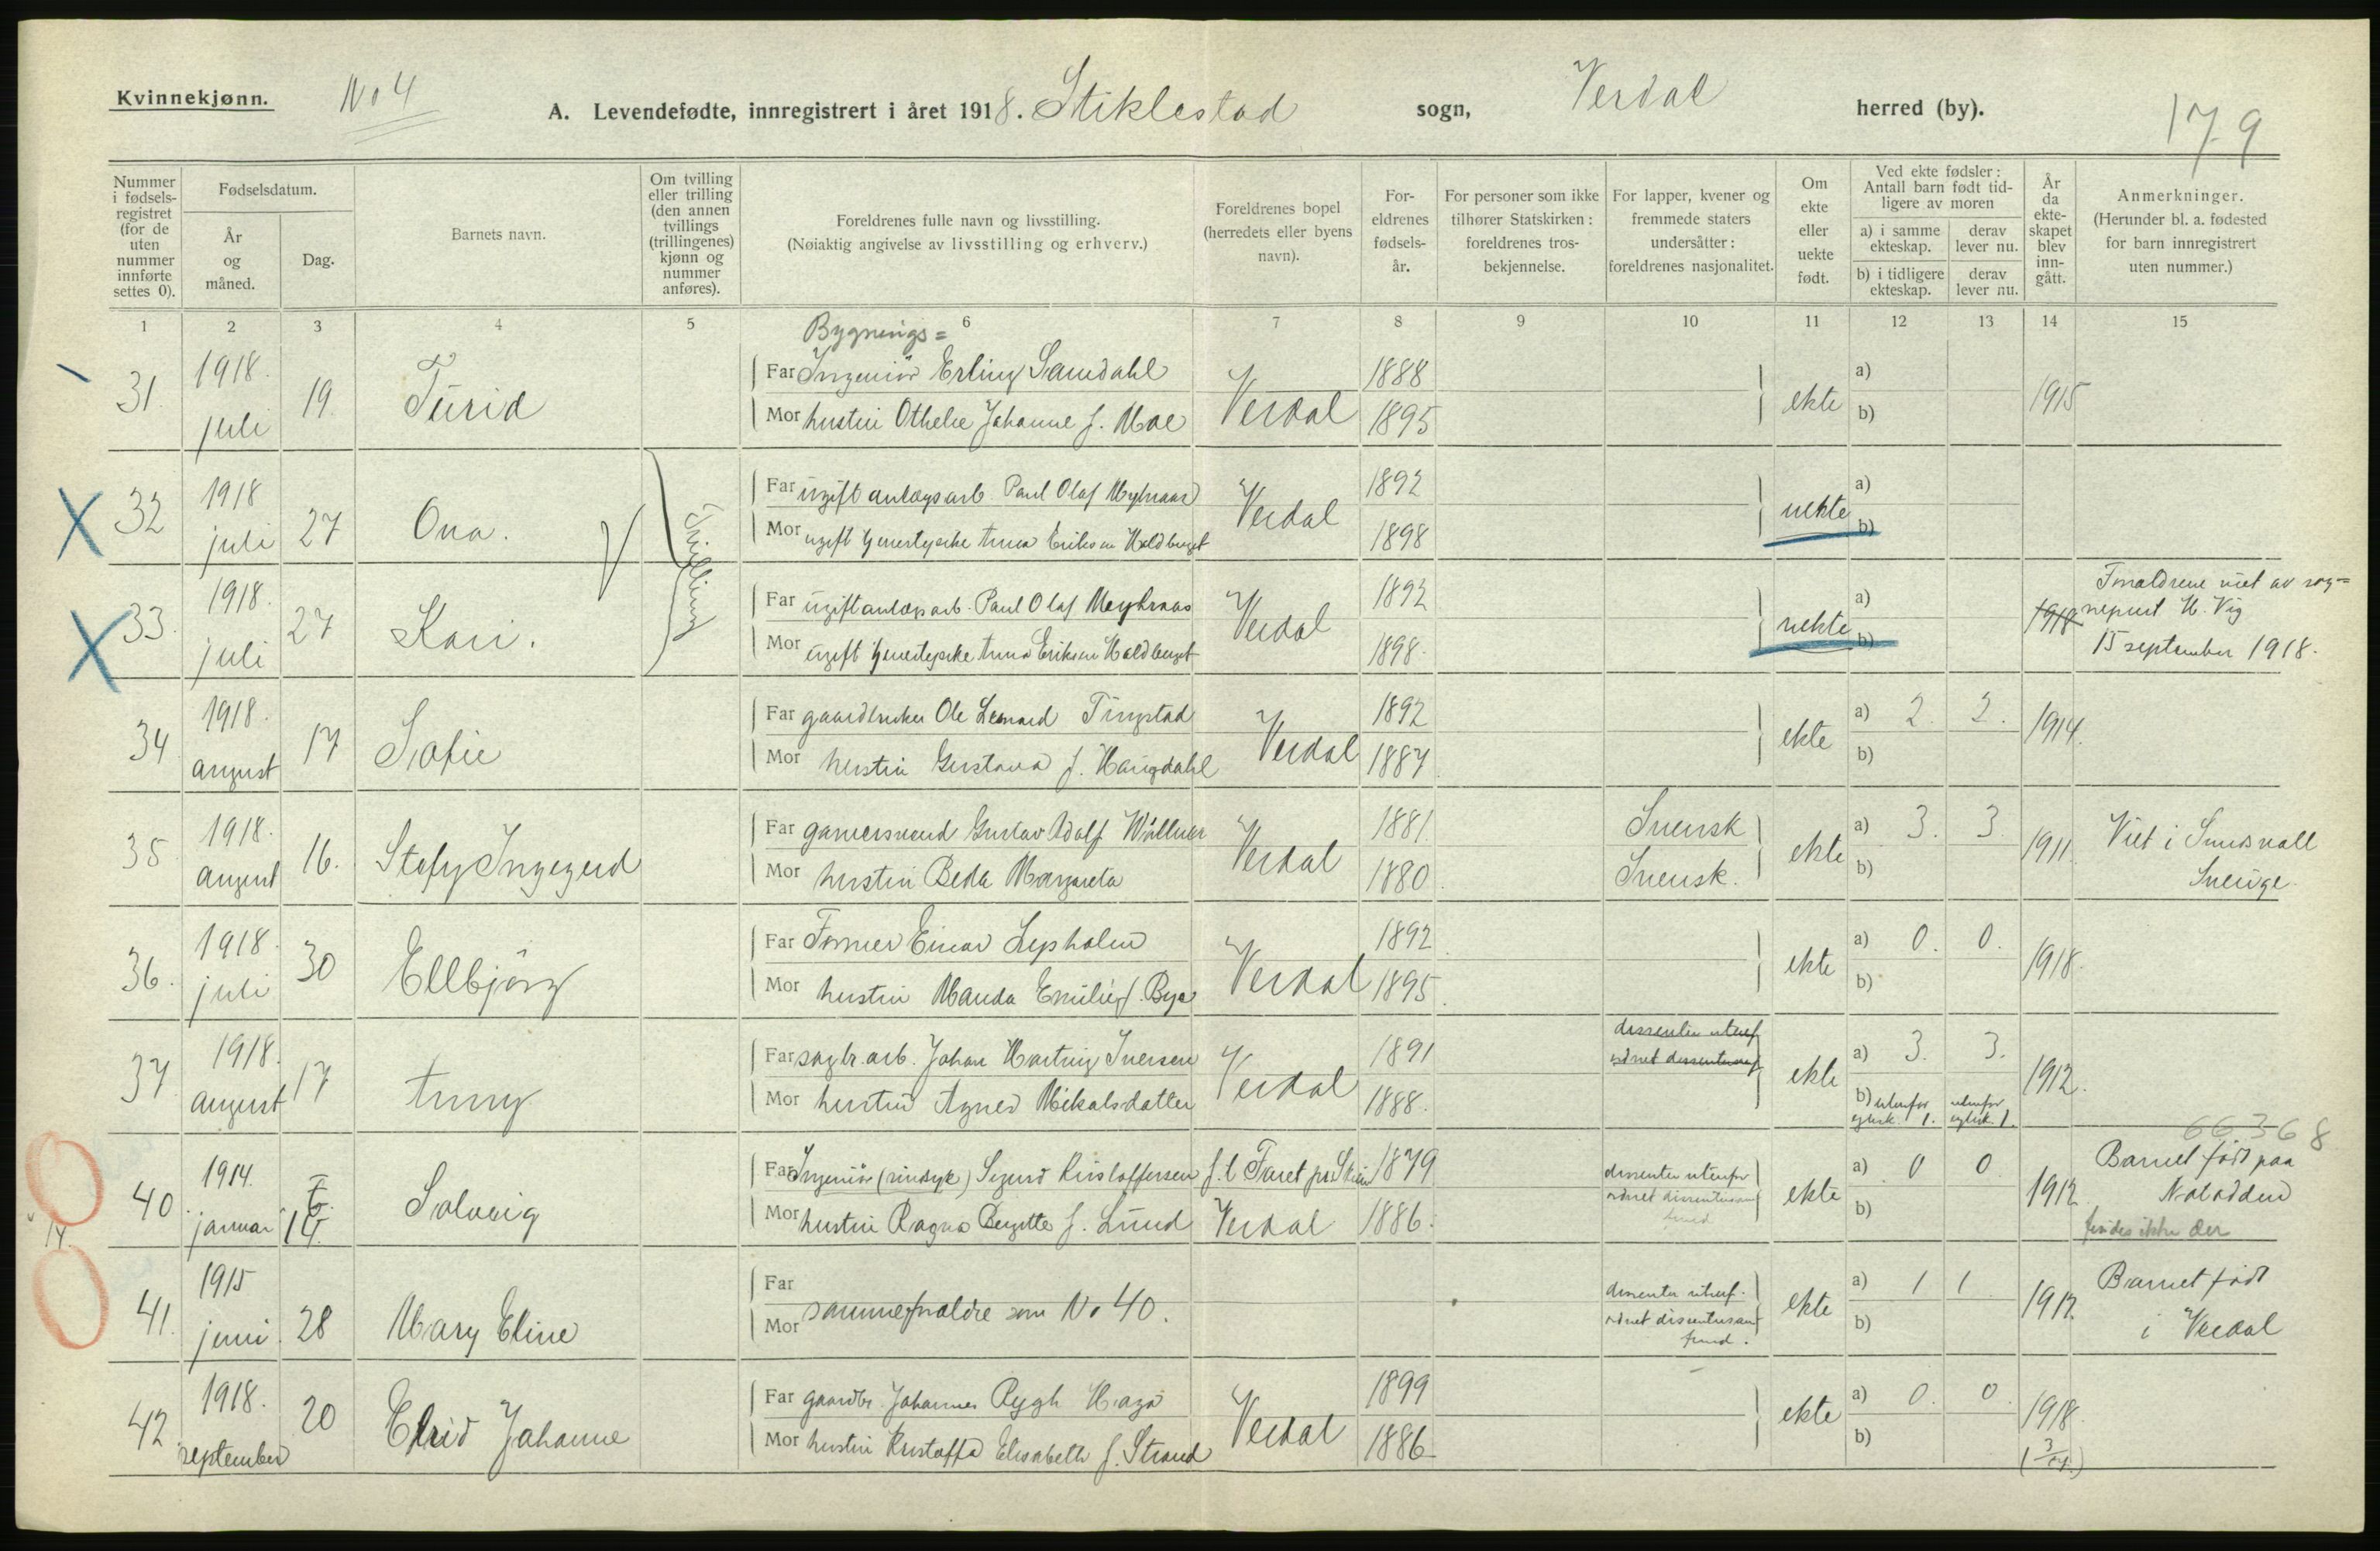 Kvinnekjønn.
No 4
A. Levendefødte, innregistrert i året 1918. Stiklestad sogn, Verdal herred (by).
179
Nummer i fødselsregistret (for de uten nummer innførte settes 0).
Fødselsdatum.
År og måned.
Dag.
Barnets navn.
Om tvilling eller trilling (den annen tvillings (trillingenes) kjønn og nummer anføres).
Foreldrenes fulle navn og livsstilling.
(Nøiaktig angivelse av livsstilling og erhverv.)
Foreldrenes bopel (herredets eller byens navn).
Foreldrenes fødselsår.
For personer som ikke tilhører Statskirken: foreldrenes trosbekjennelse.
For lapper, kvener og fremmede staters undersåtter: foreldrenes nasjonalitet.
Om ekte eller uekte født.
Ved ekte fødsler: Antall barn født tidligere av moren
a) i samme ekteskap.
derav lever nu.
b) i tidligere ekteskap.
derav lever nu.
År da ekteskapet blev inngått.
Anmerkninger.
(Herunder bl. a. fødested for barn innregistrert uten nummer.)
1 2 3 4 5 6 7 8 9 10 11 12 13 14 15
Bygnings=
31. 1918. juli 19. Turid
Far Ingeniör Erling Samdahl 1888
Mor hustru Othelie Johanne f. Moe Verdal 1895
ekte a) b) 1915
32 1918 juli 27 Ona. Tvilling
Far ugift anlægsarb Paul Olaf Myhraas 1892
Mor ugift tjenestepike Anna Eriksen Holdberget Verdal 1898
uekte a) b)
33. 1918. juli 27 Kari.
Far ugift anlægsarb. Paul Olaf Myhraas 1892
Mor ugift tjenestepike Anna Eriksen Holdberget Verdal 1898.
uekte a) b) 1918
Forældrene viet av sog=
nepræst H. Vig
15 september 1918.
34 1918. august 17 Sofie
Far gaardbruker Ole Leonard Tingstad 1892
Mor hustru Gustava f. Haugdahl Verdal 1887.
ekte a) 2. 2. b) 1914.
35 1918. august 16. Stefy Ingegerd
Far garversvend Gustav Adolf 1881. Svensk
Mor hustru Beda Margareta Verdal 1880. Svensk.
ekte a) 3. 3 b) 1911.
Viet i Sundsvall
Sverige.
36. 1918. juli 30 Ellbjörg
Far Former Einar Lysholm 1892
Mor hustru Manda Emilie f. Bye Verdal 1895.
ekte a) 0. 0. b) 1918.
37 1918. august 17 Anny
Far sagbr.arb. Johan Hartvig Iversen 1891
Mor hustru Agnes Mikalsdatter Verdal 1888.
dissenter utenf
ordnet dissentersamf
ekte a) 3. 3. b) utenfor egtesk. 1. utenfor egtesk. 1. 1912.
66368
40. 1914. januar 14. Solveig
Far Ingeniör (sindsyk) Sigurd Kristoffersen 1879
Mor hustru Ragna Bergitte f. Lund Verdal 1886.
dissenter utenfor
ordnet dissentersam
fund
ekte a) 0 0 b) 1912
Barnet født paa
Notodden
findes ikke der
14.
41. 1915 juni 28 Mary Eline
Far
Mor
samme forældre som No 40.
dissenter utenf.
ordnet dissentersam
fund.
ekte a) 1 1 b) 1912.
Barnet født
i Verdal
42 1918. september 20 Elrid Johanne
Far gaardbr. Johannes Rygh Haga 1899
Mor hustru Kristoffa Elisabeth f. Strand Verdal 1886
ekte a) 0. 0. b) 1918.